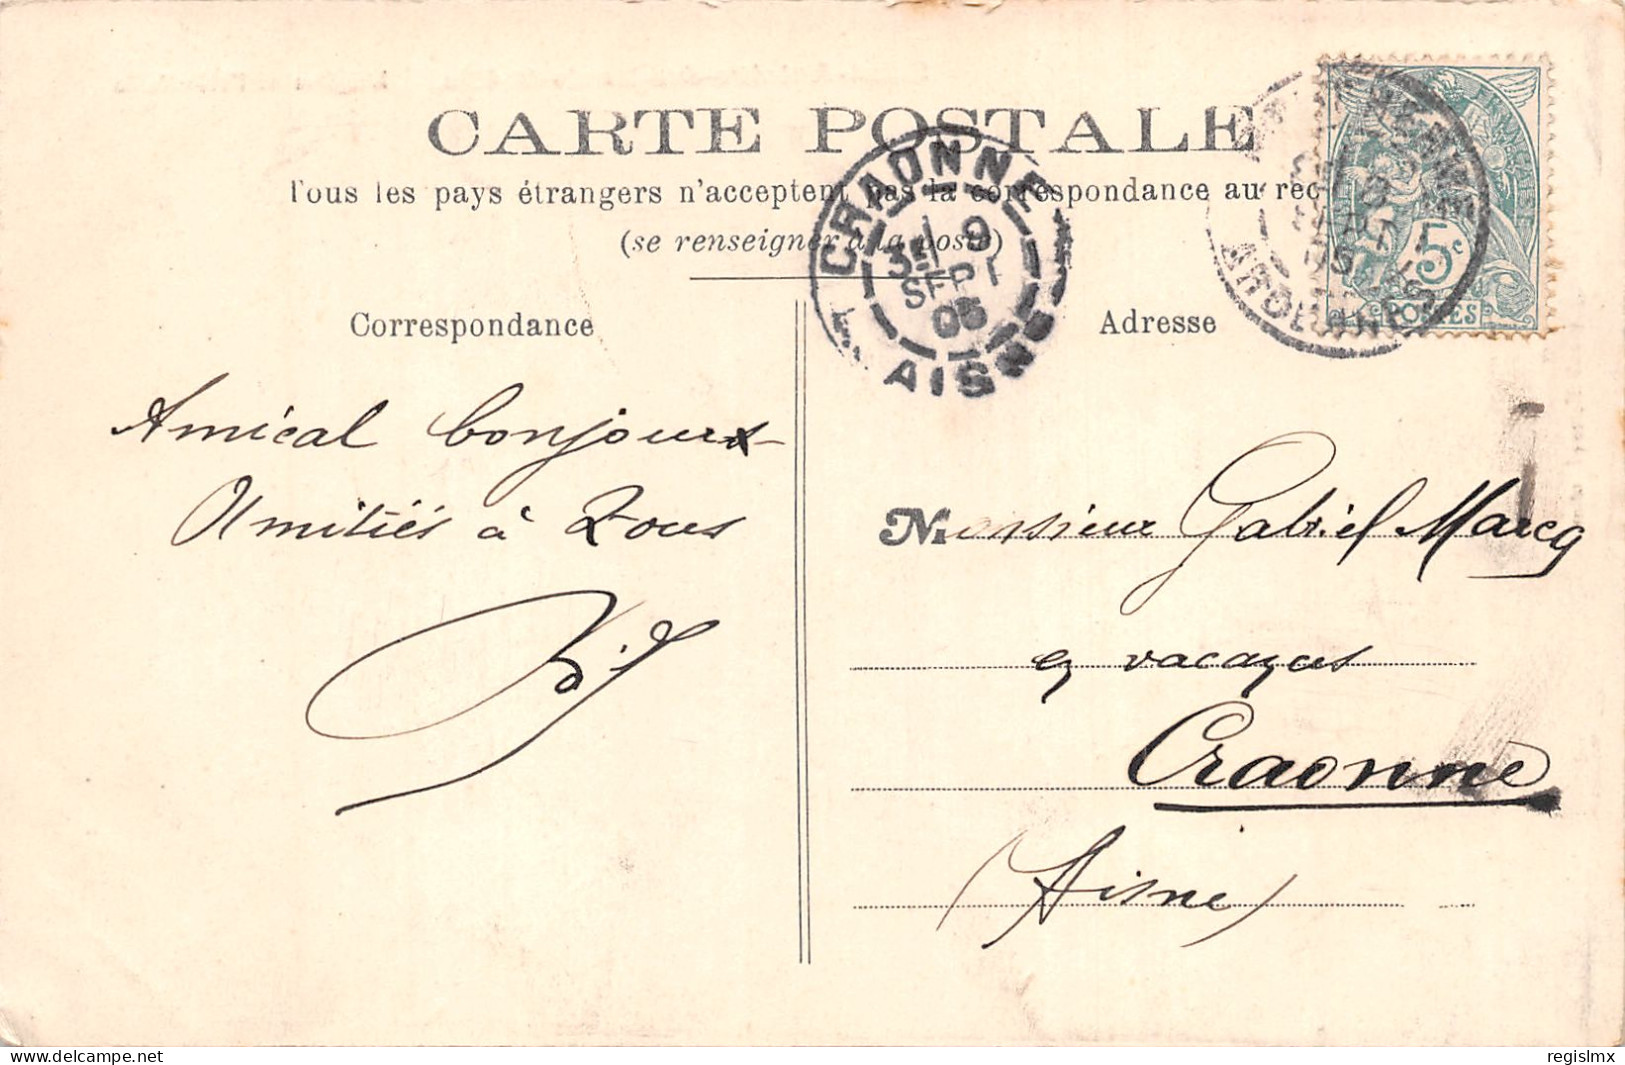 CARTE POSTALE
Tous les pays étrangers n'acceptent pas la correspondance au rec
(se renseigner à la poste)
CRAONNE
9
SEPT
05
AISNE
FRANÇAISE
5c
POSTES
Correspondance
Adresse
Amical bonjour
Amitiés à Tous
Monsieur Gabriel Marcq
en vacances
Craonne
(Aisne)
delcampe.net
regislmx